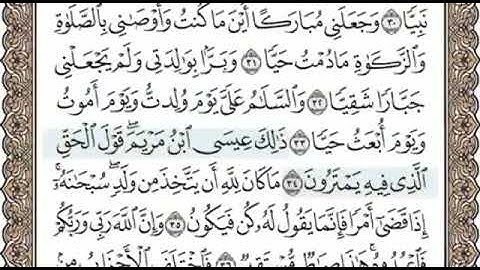 نَبِيًّا ٣٠ وَجَعَلَنِي مُبَارَكًا أَيْنَ مَا كُنتُ وَأَوْصَٰنِي بِٱلصَّلَوٰةِ
وَٱلزَّكَوٰةِ مَا دُمْتُ حَيًّا ٣١ وَبَرًّۢا بِوَٰلِدَتِي وَلَمْ يَجْعَلْنِي
جَبَّارًا شَقِيًّا ٣٢ وَٱلسَّلَٰمُ عَلَيَّ يَوْمَ وُلِدتُّ وَيَوْمَ أَمُوتُ
وَيَوْمَ أُبْعَثُ حَيًّا ٣٣ ذَٰلِكَ عِيسَى ٱبْنُ مَرْيَمَۖ قَوْلَ ٱلْحَقِّ
ٱلَّذِي فِيهِ يَمْتَرُونَ ٣٤ مَا كَانَ لِلَّهِ أَن يَتَّخِذَ مِن وَلَدٖۖ سُبْحَٰنَهُۥٓۚ
إِذَا قَضَىٰٓ أَمْرًا فَإِنَّمَا يَقُولُ لَهُۥ كُن فَيَكُونُ ٣٥ وَإِنَّ ٱللَّهَ رَبِّي وَرَبُّكُمْ
فَٱعْبُدُوهُۚ هَٰذَا صِرَٰطٌ مُّسْتَقِيمٌ ٣٦ فَٱخْتَلَفَ ٱلْأَحْزَابُ مِنۢ